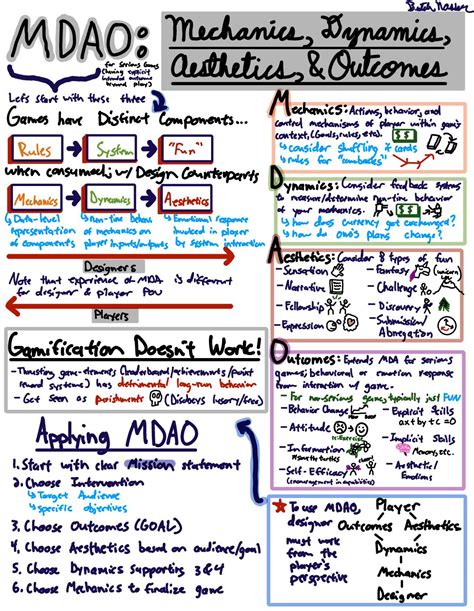 MDAO:
Mechanics, Dynamics,
Aesthetics, & Outcomes
for serious games
(having explicit
intended outcome
toward player)
Let's start with these three
Games have Distinct Components...
Rules
System
"Fun"
when consumed, w/ Design Counterparts
Mechanics
Dynamics
Aesthetics
Data-level
representation
of components
Run-time behav
of mechanics on
player inputs/outputs
Emotional response
invoked in player
by system interaction
Designers
Note that experience of MDA is different
for designer & player POV
Players
Gamification Doesn't Work!
- Thrusting game-elements (leaderboard/achievements/point
reward systems) has detrimental long-run behavior
- Get seen as punishments
Applying MDAO
1. Start with clear Mission statement
2. Choose Intervention
Target Audience
specific objectives
3. Choose Outcomes (GOAL)
4. Choose Aesthetics based on audience/goal
5. Choose Dynamics supporting 3&4
6. Choose Mechanics to finalize game
Mechanics: Actions, behavior, and
control mechanisms of player within game
context, (Goals, rules, etc).
consider shuffling cards
rules for
$$$
Dynamics: Consider feedback systems
to determine run-time behavior
of your mechanics.
$$$
how does currency get exchanged?
how do opp's plans change?
Aesthetics: Consider 8 types of fun
- Sensation
- Narrative
- Fellowship
- Expression
- Fantasy (unicorn)
- Challenge
- Discovery
- Submission/
Abnegation
Outcomes: Extends MDA for serious
games; behavioral or emotion response
from interaction w/ game.
- For non-serious games, typically just FUN
- Behavior Change
- Attitude
- Information
- Self-Efficacy
(encouragement in capabilities)
- Explicit Skills
ax+by+c=0
- Implicit Skills
Memory, etc.
- Aesthetic/
Emotions
To use MDAO,
designer
must work
from the
player's
perspective
Player
Outcomes Aesthetics
Dynamics
Mechanics
Designer